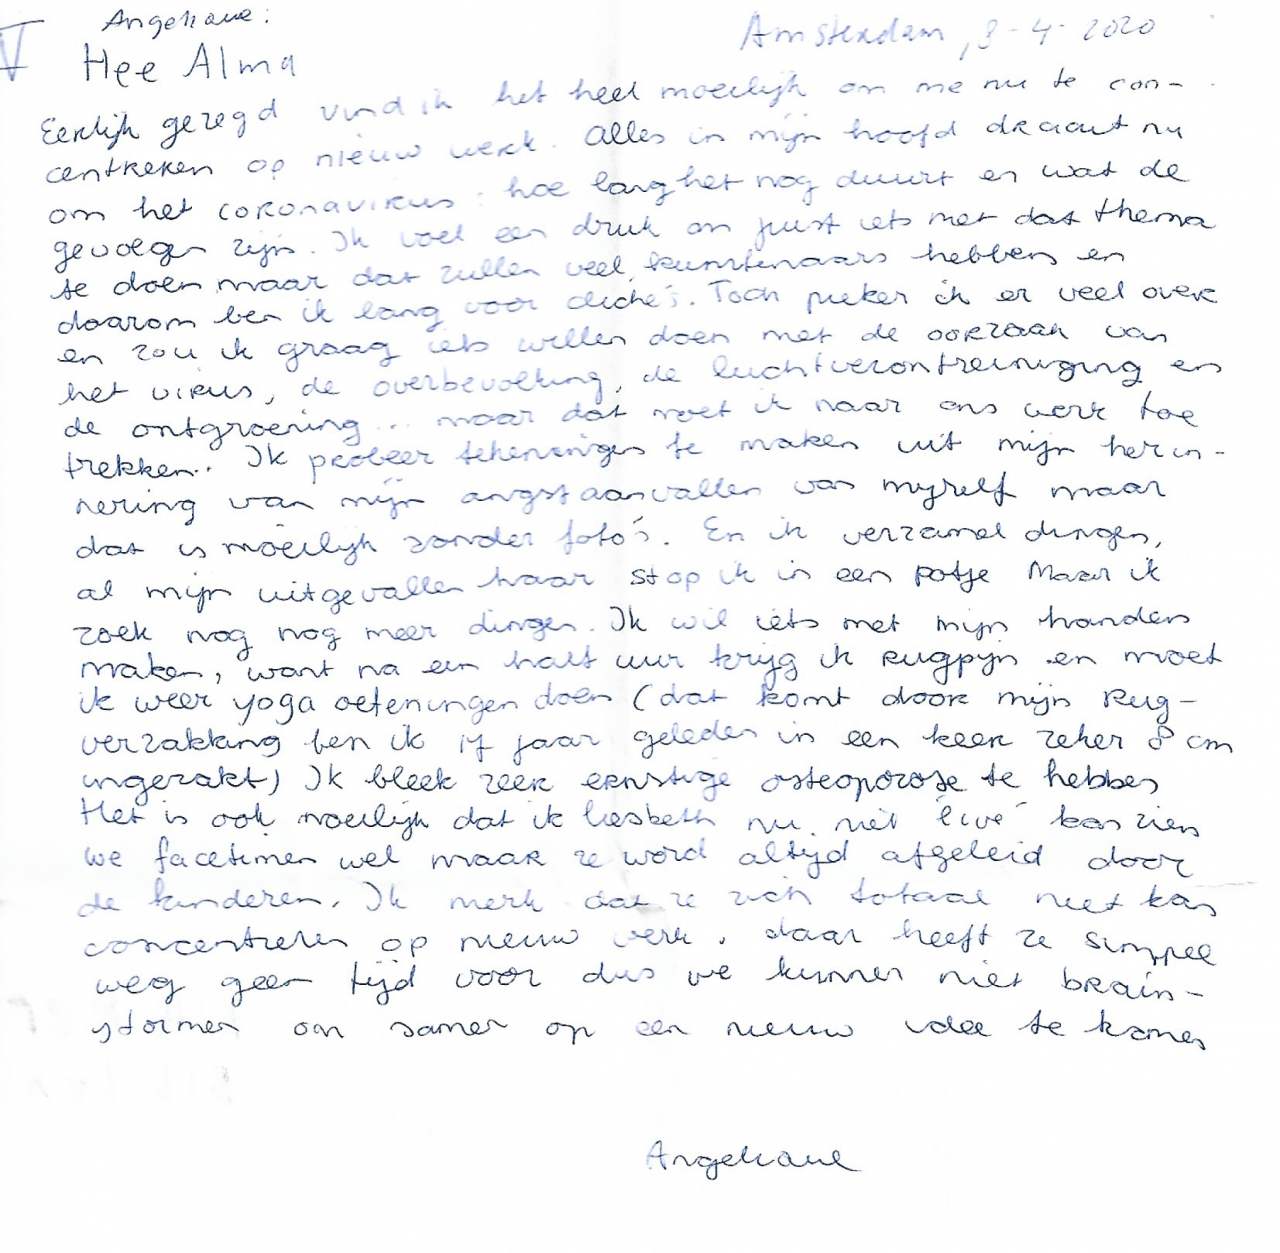 Angeliane:
V
Amsterdam, 3-4-2020
Hee Alma
Eerlijk gezegd vind ik het heel moeilijk om me nu te con-
centreren op nieuw werk. Alles in mijn hoofd draait nu
om het coronavirus: hoe lang het nog duurt en wat de
gevolgen zijn. Ik voel een druk om juist iets met dat thema
te doen maar dat zullen veel kunstenaars hebben en
daarom ben ik bang voor cliché's. Toch pieker ik er veel over
en zou ik graag iets willen doen met de oorzaak van
het virus, de overbevolking, de luchtverontreiniging en
de ontgroening... maar dat moet ik naar ons werk toe
trekken. Ik probeer tekeningen te maken uit mijn herin-
nering van mijn angstaanvallen van myself maar
dat is moeilijk zonder foto's. En ik verzamel dingen,
al mijn uitgevallen haar stop ik in een potje Maar ik
zoek nog nog meer dingen. Ik wil iets met mijn handen
maken, want na een half uur krijg ik rugpijn en moet
ik weer yoga oefeningen doen (dat komt door mijn rug-
verzakking ben ik jaar geleden in een keer zeker 8 cm
ingezakt) Ik bleek zeer ernstige osteoporose te hebben
Het is ook moeilijk dat ik liesbeth nu niet 'live' kan zien
we facetimen wel maar ze word altijd afgeleid door
de kinderen. Ik merk dat ze zich totaal niet kan
concentreren op nieuw werk, daar heeft ze simpel
weg geen tijd voor dus we kunnen niet brain-
stormen om samen op een nieuw idee te komen
Angeliane